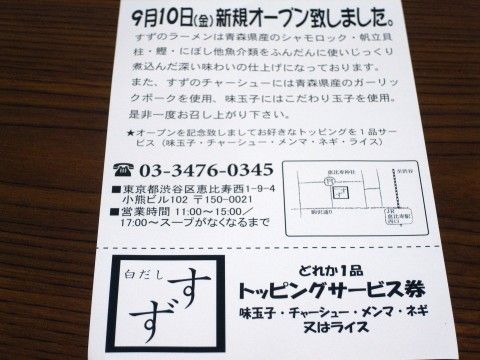 9月10日(金)新規オープン致しました。
すずのラーメンは青森県産のシャモロック・帆立貝
柱・鰹・にぼし他魚介類をふんだんに使いじっくり
煮込んだ深い味わいの仕上げになっております。
また、すずのチャーシューには青森県産のガーリッ
クポークを使用、味玉子にはこだわり玉子を使用。
是非一度お召し上がり下さい。
★オープンを記念致しましてお好きなトッピングを1品サー
ビス（味玉子・チャーシュー・メンマ・ネギ・ライス）
☎ 03-3476-0345
■東京都渋谷区恵比寿西1-9-4
小熊ビル102 〒150-0021
■営業時間 11:00〜15:00/
17:00〜スープがなくなるまで
恵比寿神社
至渋谷
すず
駒沢通り
JR
恵比寿駅
西口
白だし
すず
どれか1品
トッピングサービス券
味玉子・チャーシュー・メンマ・ネギ
又はライス